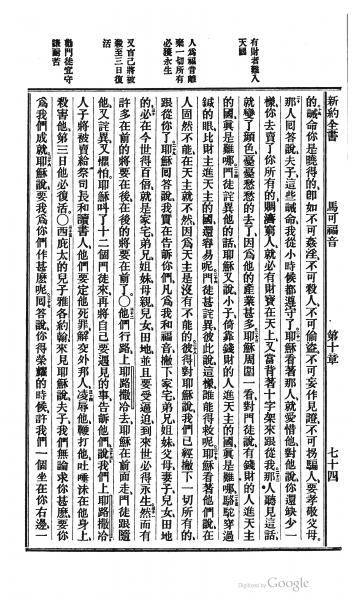 新約全書 馬可福音 第十章 七十四
有財者難入
天國
人爲福音離
棄一切所有
必獲永生
又言己將被
殺至三日復
活
勸門徒宜守
謙耐苦
的、誡命你是曉得的、卽如不可姦淫、不可殺人、不可偷盜、不可妄作見證、不可拐騙人、要孝敬父母。
那人回答說、夫子、這些誡命、我從小時候都遵守了。耶穌看著那人、就愛惜他、對他說、你還缺少一
樣、你去賣了你所有的、賙濟窮人、就必有財寶在天上、又當背著十字架來跟從我。那人聽見這話、
就變了顏色、憂憂愁愁的去了、因爲他的產業甚多。耶穌周圍一看、對門徒說、有錢財的人進天主
的國、眞是難哪。門徒詫異他的話、耶穌又說、小子、倚靠錢財的人進天主的國、眞是難哪、駱駝穿過
鍼的眼、比財主進天主的國、還容易呢。門徒甚詫異、彼此說、這樣誰能得救呢。耶穌看著他們說、在
人固然不能、在天主就不然、因爲天主是沒有不能的。彼得對耶穌說、我們已經撇下一切所有的、
跟從你了。耶穌回答說、我實在告訴你們、凡爲我和福音、撇下家宅弟兄姐妹父母妻子兒女田地
的、必在今世得百倍、就是家宅弟兄姐妹母親兒女田地、並且要受逼迫、到來世必得永生。然而有
許多在前的將要在後、在後的將要在前了。○他們行路上耶路撒冷去、耶穌在前面走、門徒跟隨
他、又詫異、又懼怕。耶穌叫了十二個門徒來、再將自己要遇見的事告訴他們說、我們上耶路撒冷、
人子將要被賣給祭司長和讀書人、他們要定他死罪、解交外邦人、凌辱他、鞭打他、吐唾沫在他身上、
殺害他、第三日他必復活。○西庇太的兒子雅各約翰來見耶穌說、夫子、我們無論求你甚麼、要你
爲我們成就。耶穌說、要我爲你們作甚麼呢。回答說、你得榮耀的時候、許我們一個坐在你右邊、一
Digitized by Google